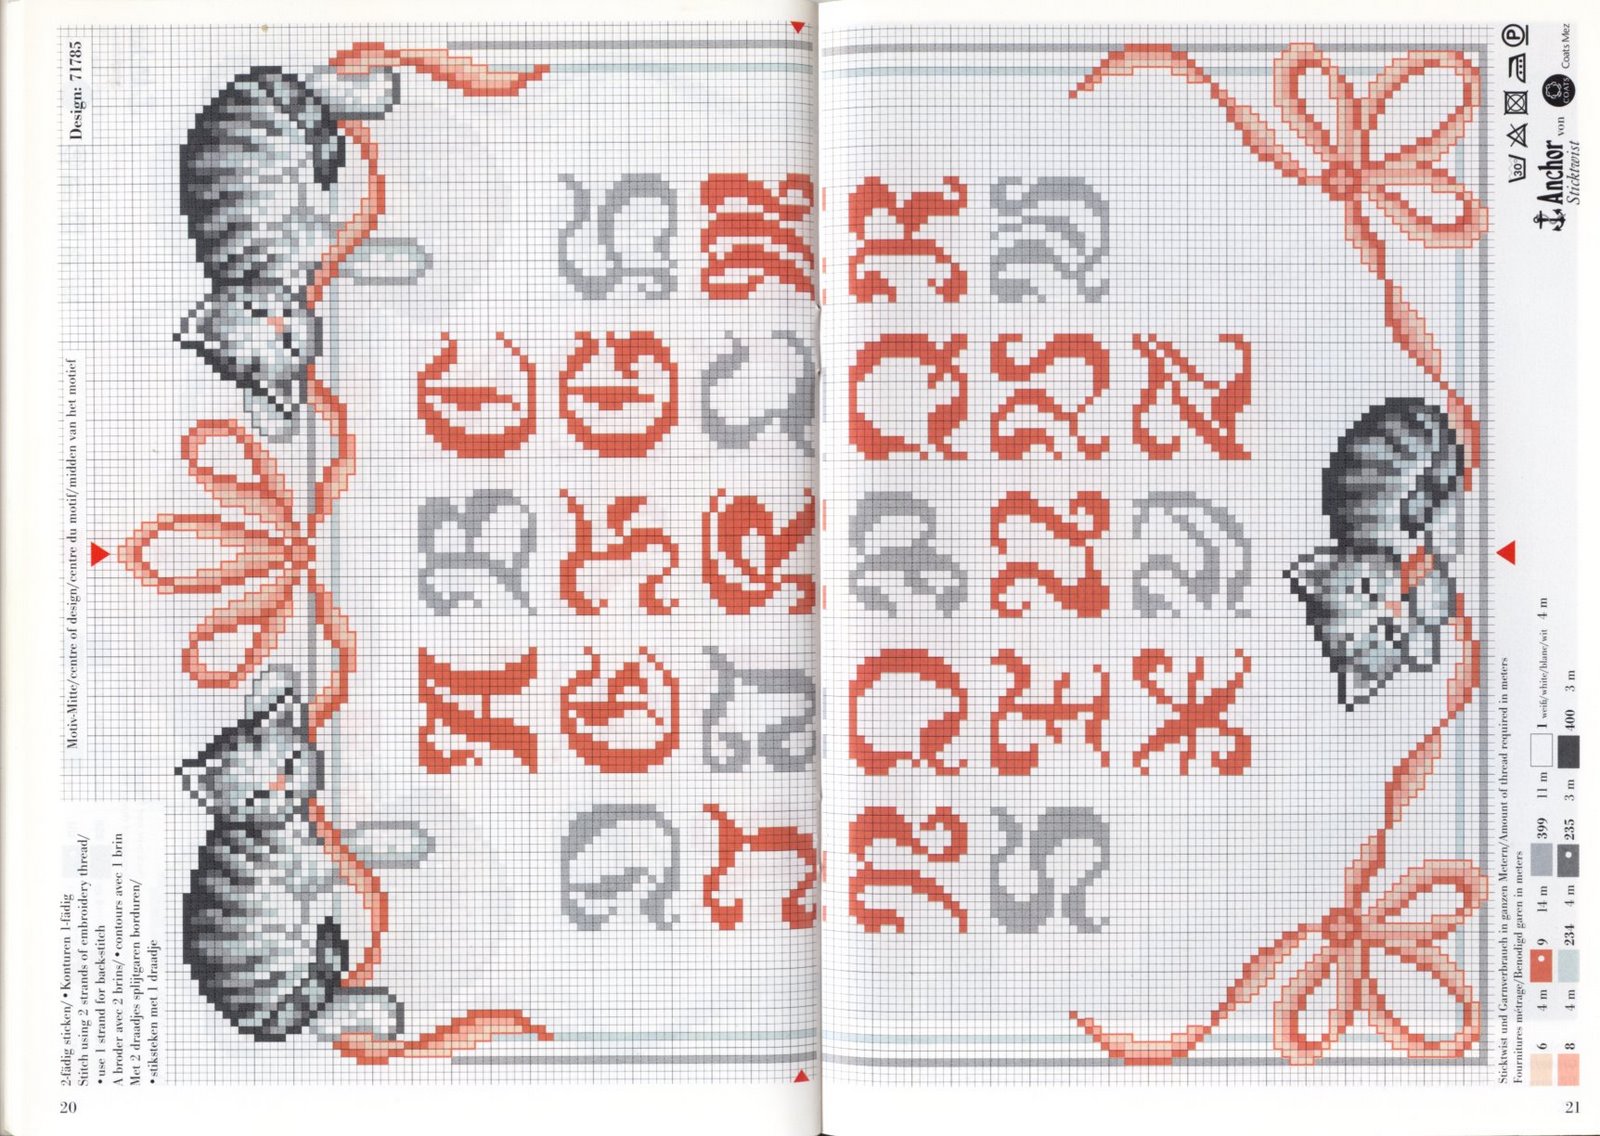 Design: 71785
Motiv-Mitte/centre of design/centre du motif/midden van het motief
2-fädig sticken/•Konturen 1-fädig
Stitch using 2 strands of embroidery thread/
•use 1 strand for backstitch
A broder avec 2 brins/•contours avec 1 brin
Met 2 draadjes splijtgaren borduren/
•stiksteken met 1 draadje
A B C
D E F G H
I J K L M
N O P Q R
S T U V W
X Y Z
Sticktwist und Garnverbrauch in ganzen Metern/Amount of thread required in meters
Fournitures métrage/Benodigd garen in meters
6 4 m 9 14 m 399 11 m 1 weiß/white/blanc/wit 4 m
8 4 m 234 4 m 235 3 m 400 3 m
30 P
Anchor von COATS Coats Mez
Sticktwist
20
21